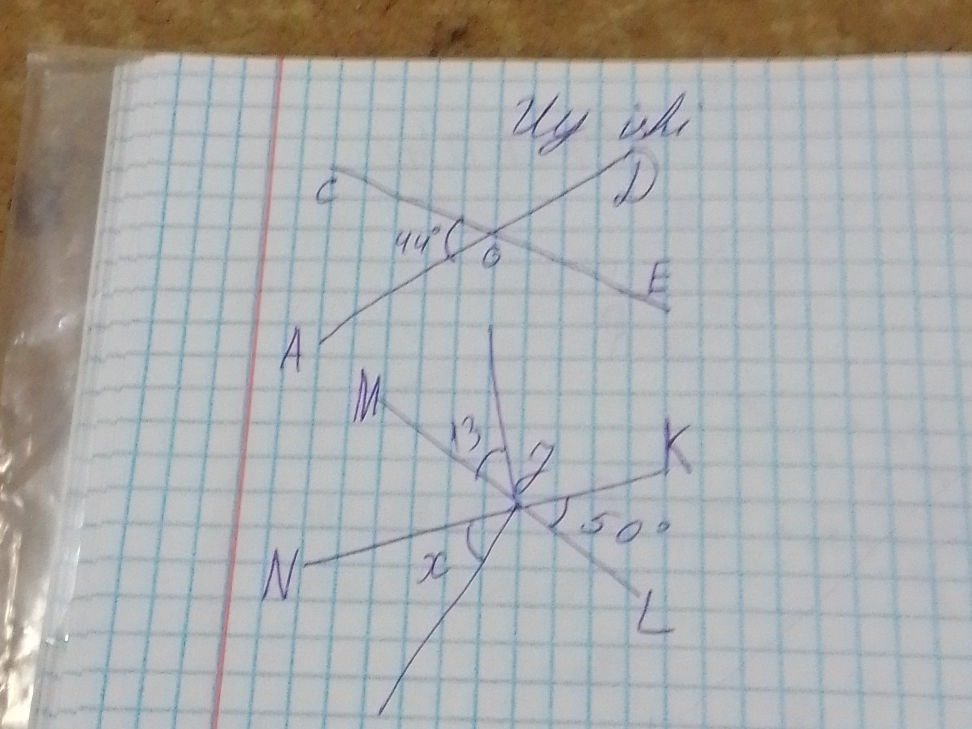 Uy ishi
C
D
44°
O
E
A
M
13
K
50°
N
x
L